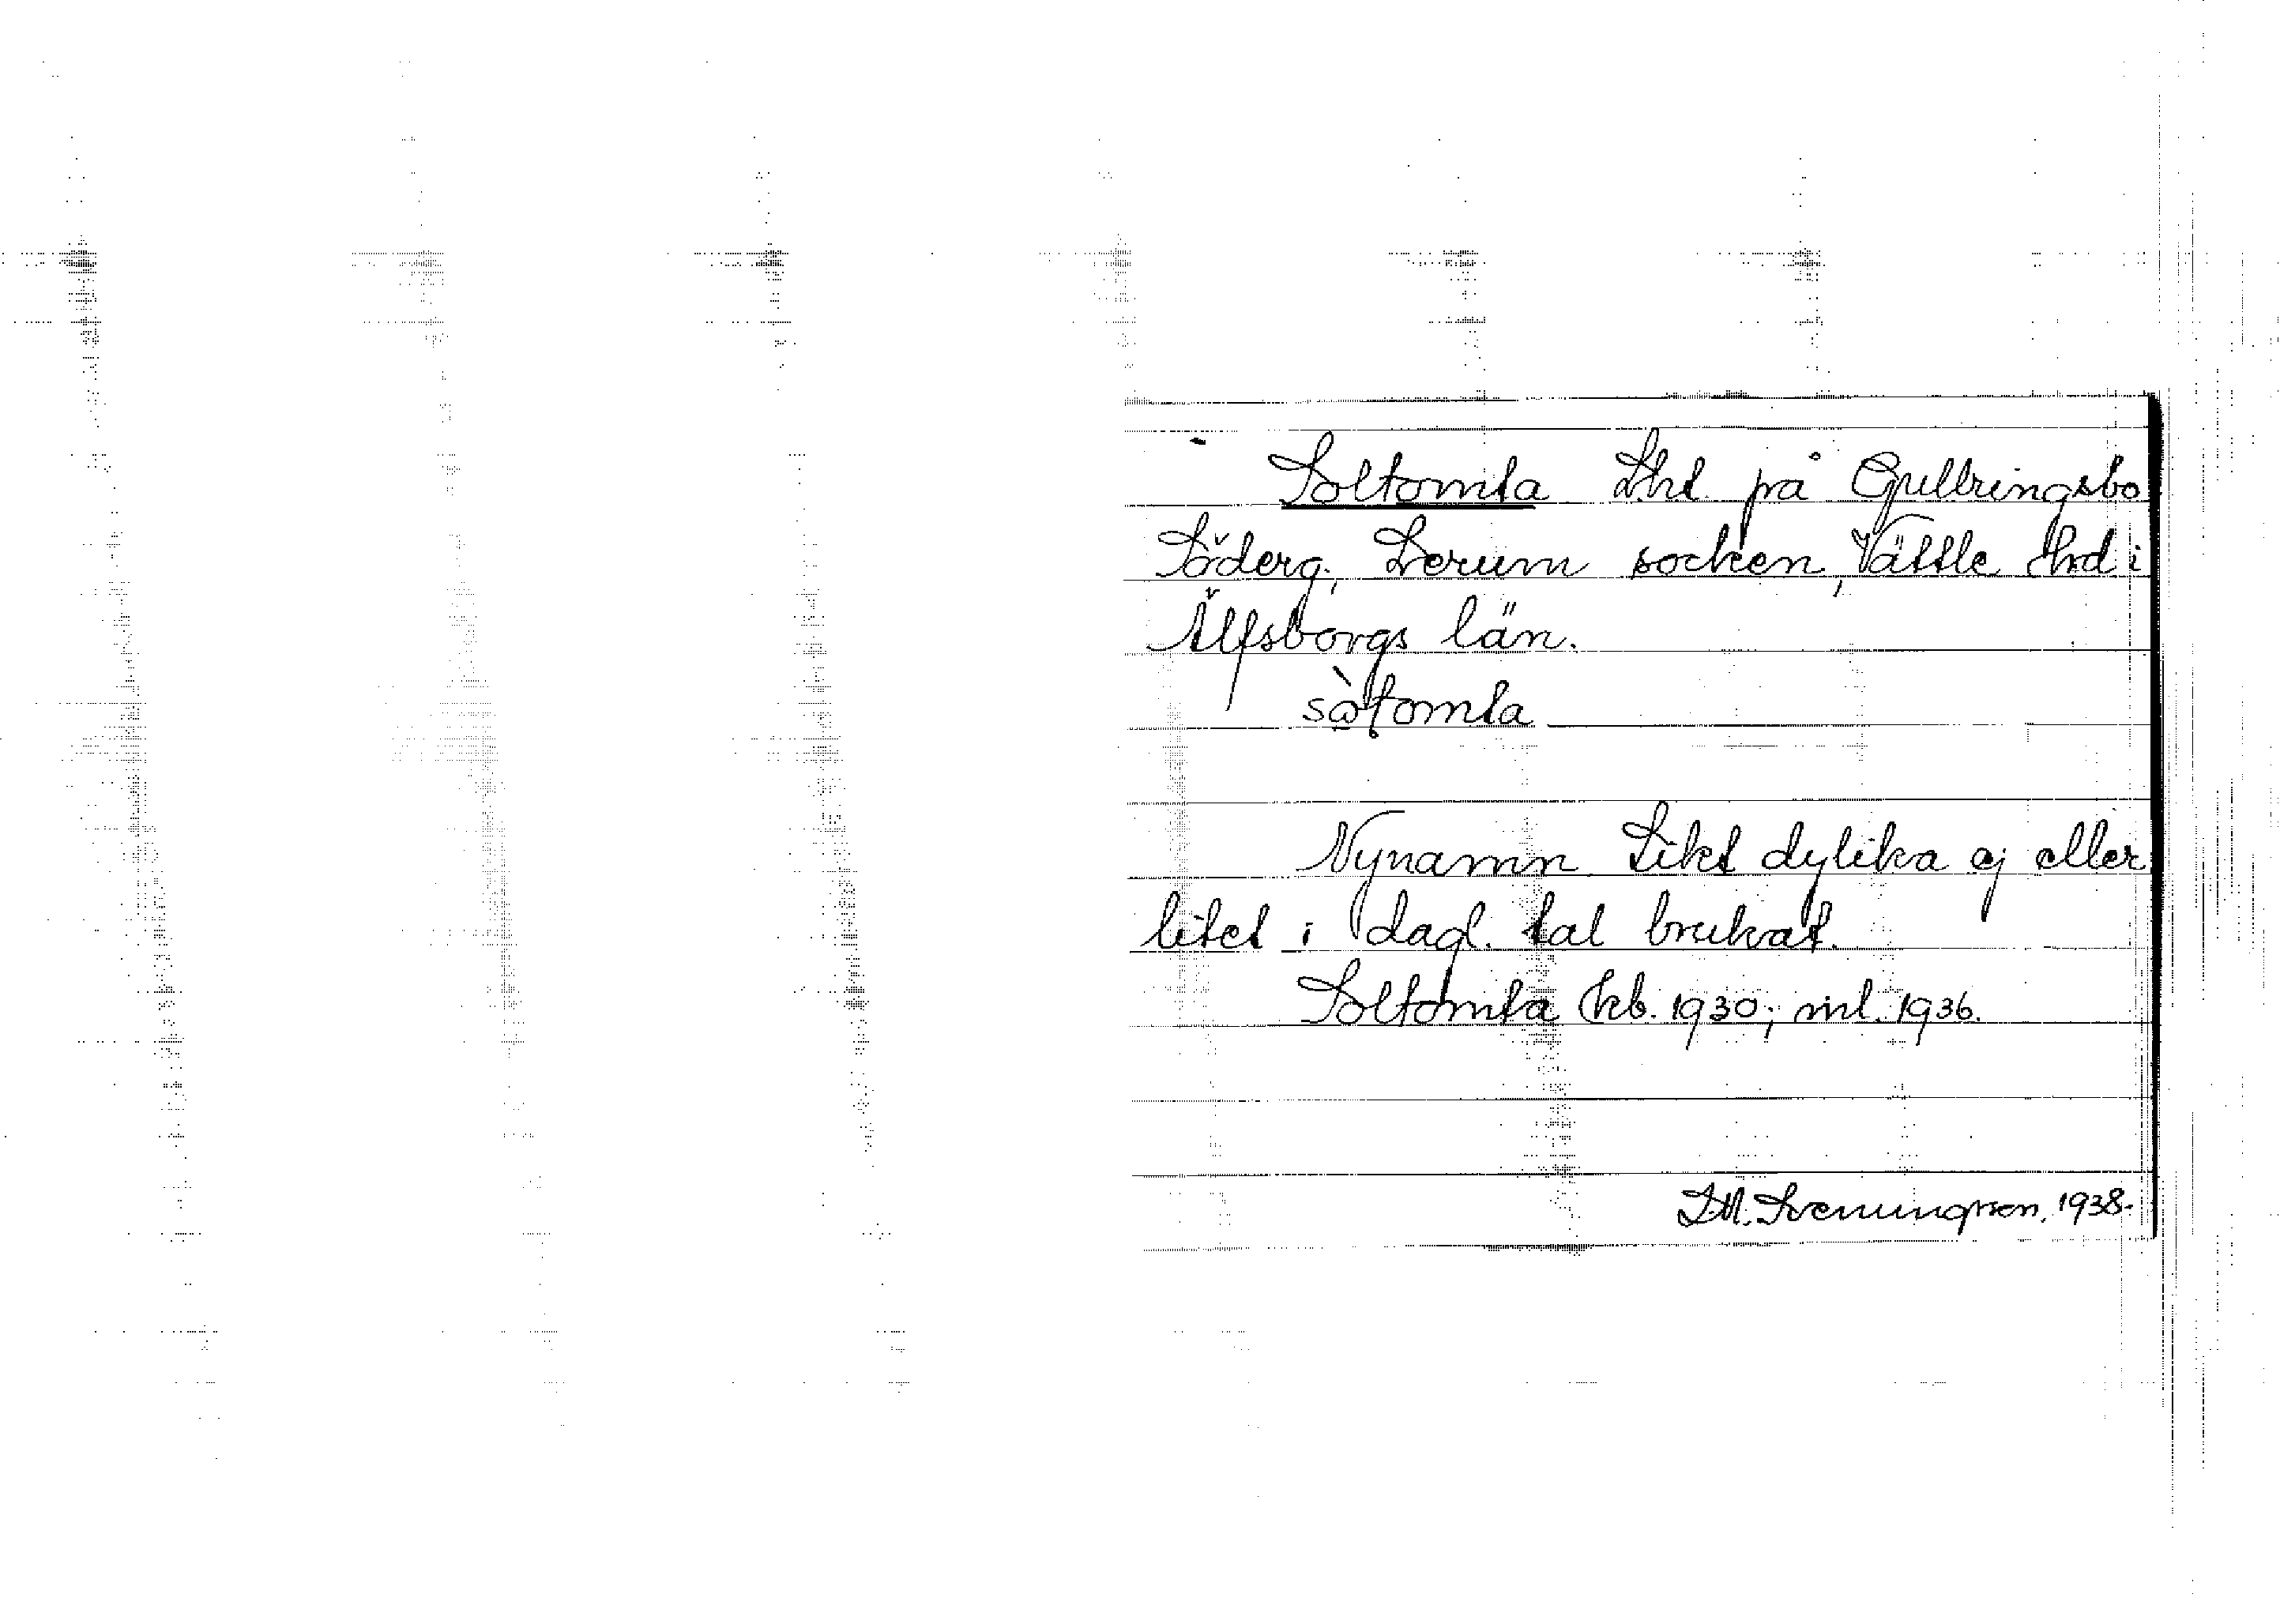 Soltomta Lht. på Gullringsbo
Söderg., Lerum socken, Vättle hd i
Älfsborgs län.
sòtomta
Nynamn. Likt dylika ej eller
litet i dagl. tal brukat.
Soltomta kb. 1930; ml. 1936.
1938.